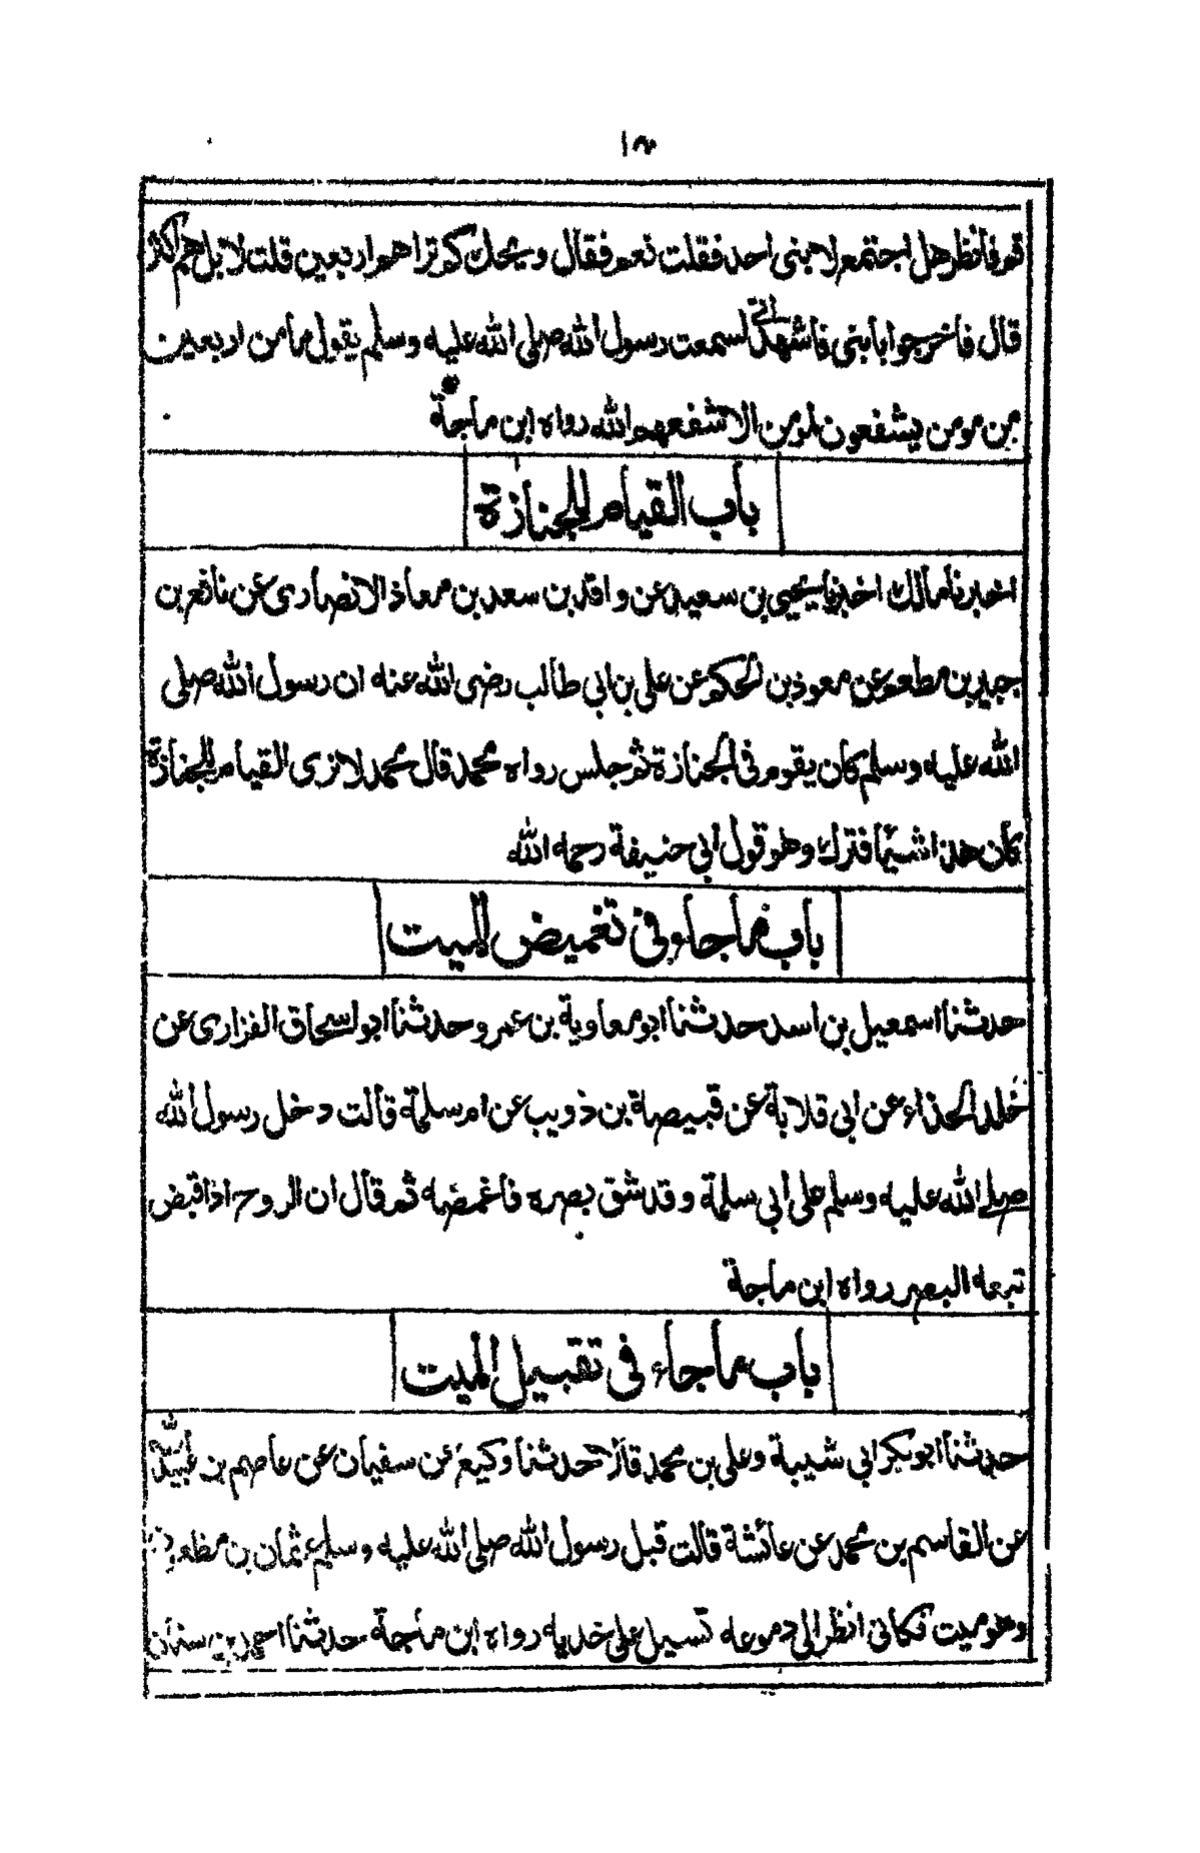 ١٣
قم فانظر هل اجتمع لابنى احد فقلت نعم فقال ويحك كم تراهم اربعين قلت لا بل هم اكثر
قال فاخرجوا بابنى فاشهد انى لسمعت رسول الله صلى الله عليه وسلم يقول ما من اربعين
من مومن يشفعون لمومن الا شفعهم الله رواه ابن ماجة
باب القيام للجنازة
اخبرنا مالك اخبرنا يحيى بن سعيد عن واقد بن سعد بن معاذ الانصارى عن نافع بن
جبير بن مطعم عن معوذ بن الحكم عن على بن ابى طالب رضى الله عنه ان رسول الله صلى
الله عليه وسلم كان يقوم فى الجنازة ثم جلس رواه محمد قال محمد لا نرى القيام للجنازة
كان هذا شيئا فترك وهو قول ابى حنيفة رحمه الله
باب ما جاء فى تغميض الميت
حدثنا اسمعيل بن اسد حدثنا ابو معاوية بن عمرو حدثنا ابو اسحاق الفزارى عن
خلد الحذاء عن ابى قلابة عن قبيصة بن ذويب عن ام سلمة قالت دخل رسول الله
صلى الله عليه وسلم على ابى سلمة وقد شق بصره فاغمضه ثم قال ان الروح اذا قبض
تبعه البصر رواه ابن ماجة
باب ما جاء فى تقبيل الميت
حدثنا ابو بكر ابى شيبة وعلى بن محمد قالا حدثنا وكيع عن سفيان عن عاصم بن عبيد الله
عن القاسم بن محمد عن عائشة قالت قبل رسول الله صلى الله عليه وسلم عثمان بن مظعون
وهو ميت فكانى انظر الى دموعه تسيل على خديه رواه ابن ماجة حدثنا احمد بن سنان